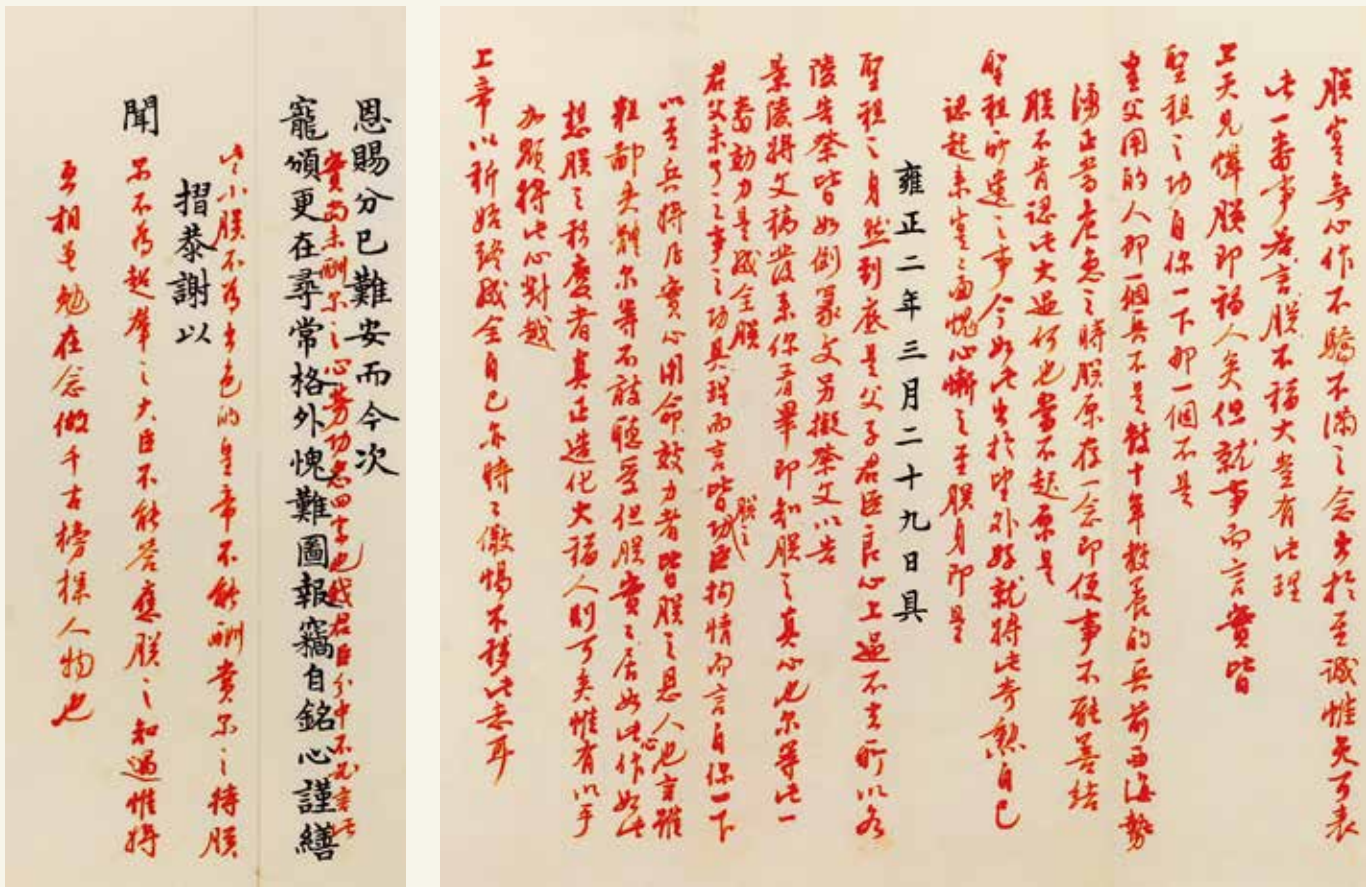 朕實無心作不驕不滿之念出於至誠惟天可表
此一番事若言朕不福大豈有此理
上天見憐朕即福人矣但就事而言實皆
聖祖之功自你一下那一個不是
皇父用的人那一個兵不是數十年教養的兵前西海勢
湧正當危急之時朕原存一念即便事不能善結
朕不肯認此大過何也當不起原是
聖祖所遺之事今如此出於望外好就將此奇勲自己
認起來實之面愧心慚之至朕身即是
雍正二年三月二十九日具
聖祖之身然到底是父子君臣良心上過不去所以各
陵告祭皆如倒纂文另擬祭文以告
景陵將文稿發來你看畢即知朕之真心也尔等此一
番効力是成全朕
君父未了之事之功具理而言皆朕之功臣拘情而言自你一下
以至兵將凡實心用命效力者皆朕之恩人也言雖
粗鄙失體尔等不敢聽受但朕實之居如此心作如此
想朕之私慶者真正造化大福人則可矣惟有以手
加額將此心對越
上帝以祈始終成全自己亦時之儆惕不移此志耳
恩賜分已難安而今次
實尚未酬尔之心勞功忠四字也我君臣分中不必言此
寵頒更在尋常格外愧難圖報竊自銘心謹繕
些小朕不為出色的皇帝不能酬賞尔之待朕
摺恭謝以
聞
尔不為超羣之大臣不能答應朕之知遇惟將
互相勉在念做千古榜樣人物也